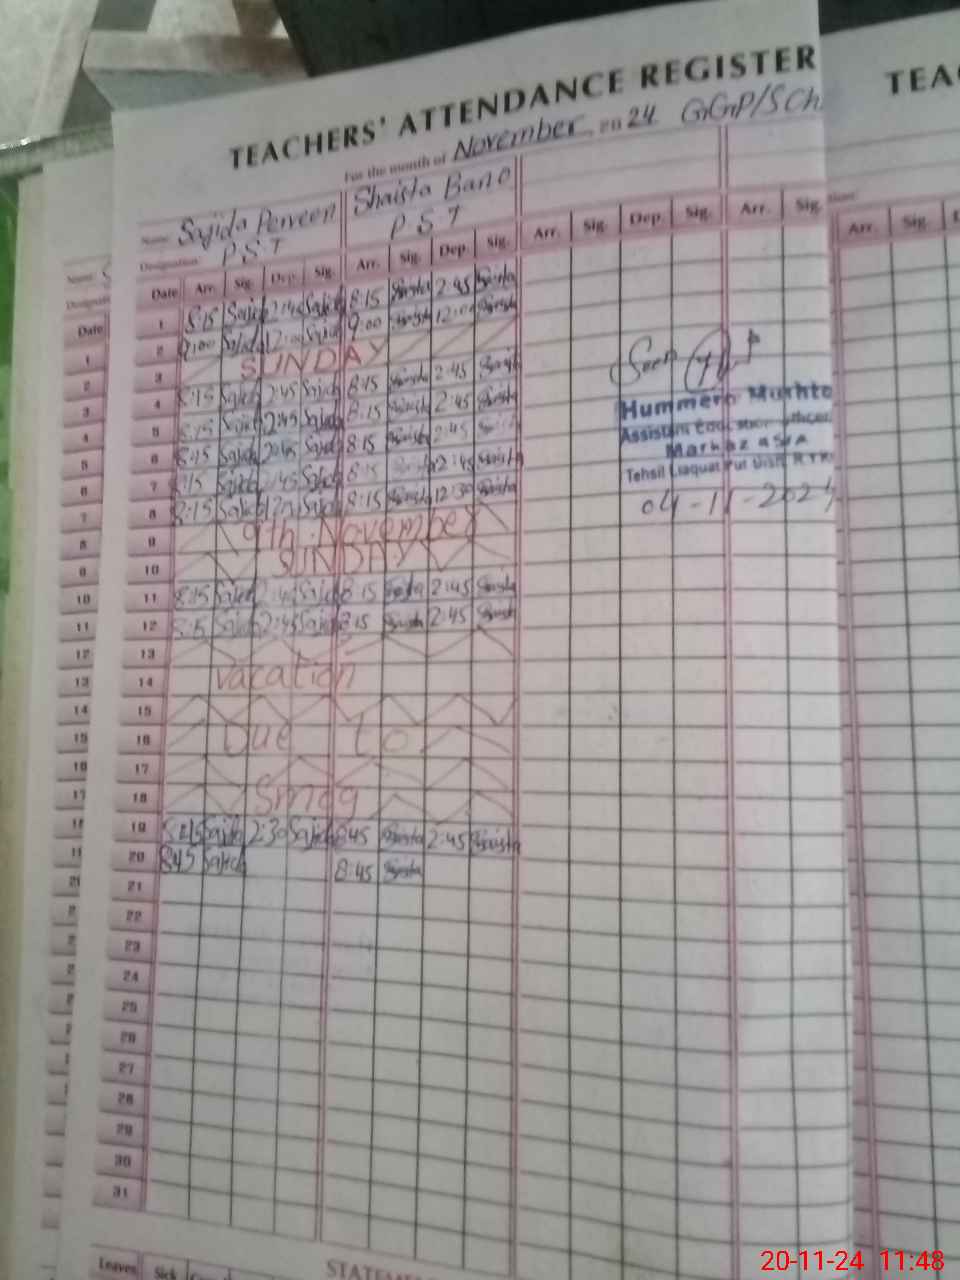 TEACHERS' ATTENDANCE REGISTER
For the month of November 2024 GGP/SCh
Name Sajida Perveen Shaista Bano
Designation P.S.T P.S.T
Date Arr. Sig. Dep. Sig. Arr. Sig. Dep. Sig. Arr. Sig. Dep. Sig. Arr. Sig.
1 8:15 Sajida 2:45 Sajida 8:15 Shaista 2:45 Shaista
2 9:00 Sajida 12:00 Sajida 9:00 Shaista 12:00 Shaista
3 SUNDAY
4 8:15 Sajida 2:45 Sajida 8:15 Shaista 2:45 Shaista
5 8:15 Sajida 2:45 Sajida 8:15 Shaista 2:45 Shaista
6 8:15 Sajida 2:45 Sajida 8:15 Shaista 2:45
7 8:15 Sajida 2:45 Sajida 8:15 Shaista 2:45 Shaista
8 8:15 Sajida Sajida 8:15 Shaista 12:30 Shaista
9 9th November
10 SUNDAY
11 8:15 Sajida 2:45 Sajida 8:15 Shaista 2:45 Shaista
12 8:15 Sajida 2:45 Sajida 8:15 Shaista 2:45 Shaista
13
14 vacation
15
16 Due to
17
18 Smog
19 Sajida 2:30 Sajida 8:45 Shaista 2:45 Shaista
20 8:45 Sajida 8:45 Shaista
21
22
23
24
25
26
27
28
29
30
31
Leaves Sick
Seen
Hummera Mushta
Assistant
Markaz
Tehsil Liaquat Pur Distt R.Y.K
04-11-2024
TEAC
Arr. Sig.
Name
Date
1
2
3
4
5
6
7
8
9
10
11
12
13
14
15
16
20-11-24 11:48